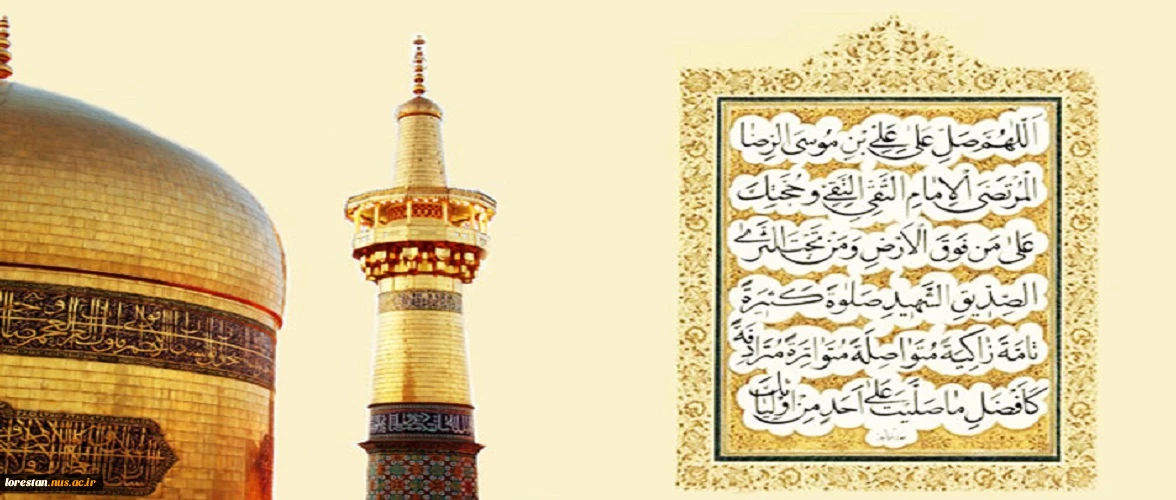 اَللّٰهُمَّ صَلِّ عَلىٰ عَلِيِّ بْنِ مُوسَى الرِّضَا
الْمُرْتَضَى الْاِمَامِ التَّقِيِّ النَّقِيِّ وَ حُجَّتِكَ
عَلىٰ مَنْ فَوْقَ الْاَرْضِ وَ مَنْ تَحْتَ الثَّرىٰ
الصِّدِّيقِ الشَّهِيدِ صَلوٰةً كَثِيرَةً
تَامَّةً زَاكِيَةً مُتَوَاصِلَةً مُتَوَاتِرَةً مُتَرَادِفَةً
كَاَفْضَلِ مَا صَلَّيْتَ عَلىٰ اَحَدٍ مِنْ اَوْلِيَائِكَ
lorestan.nus.ac.ir